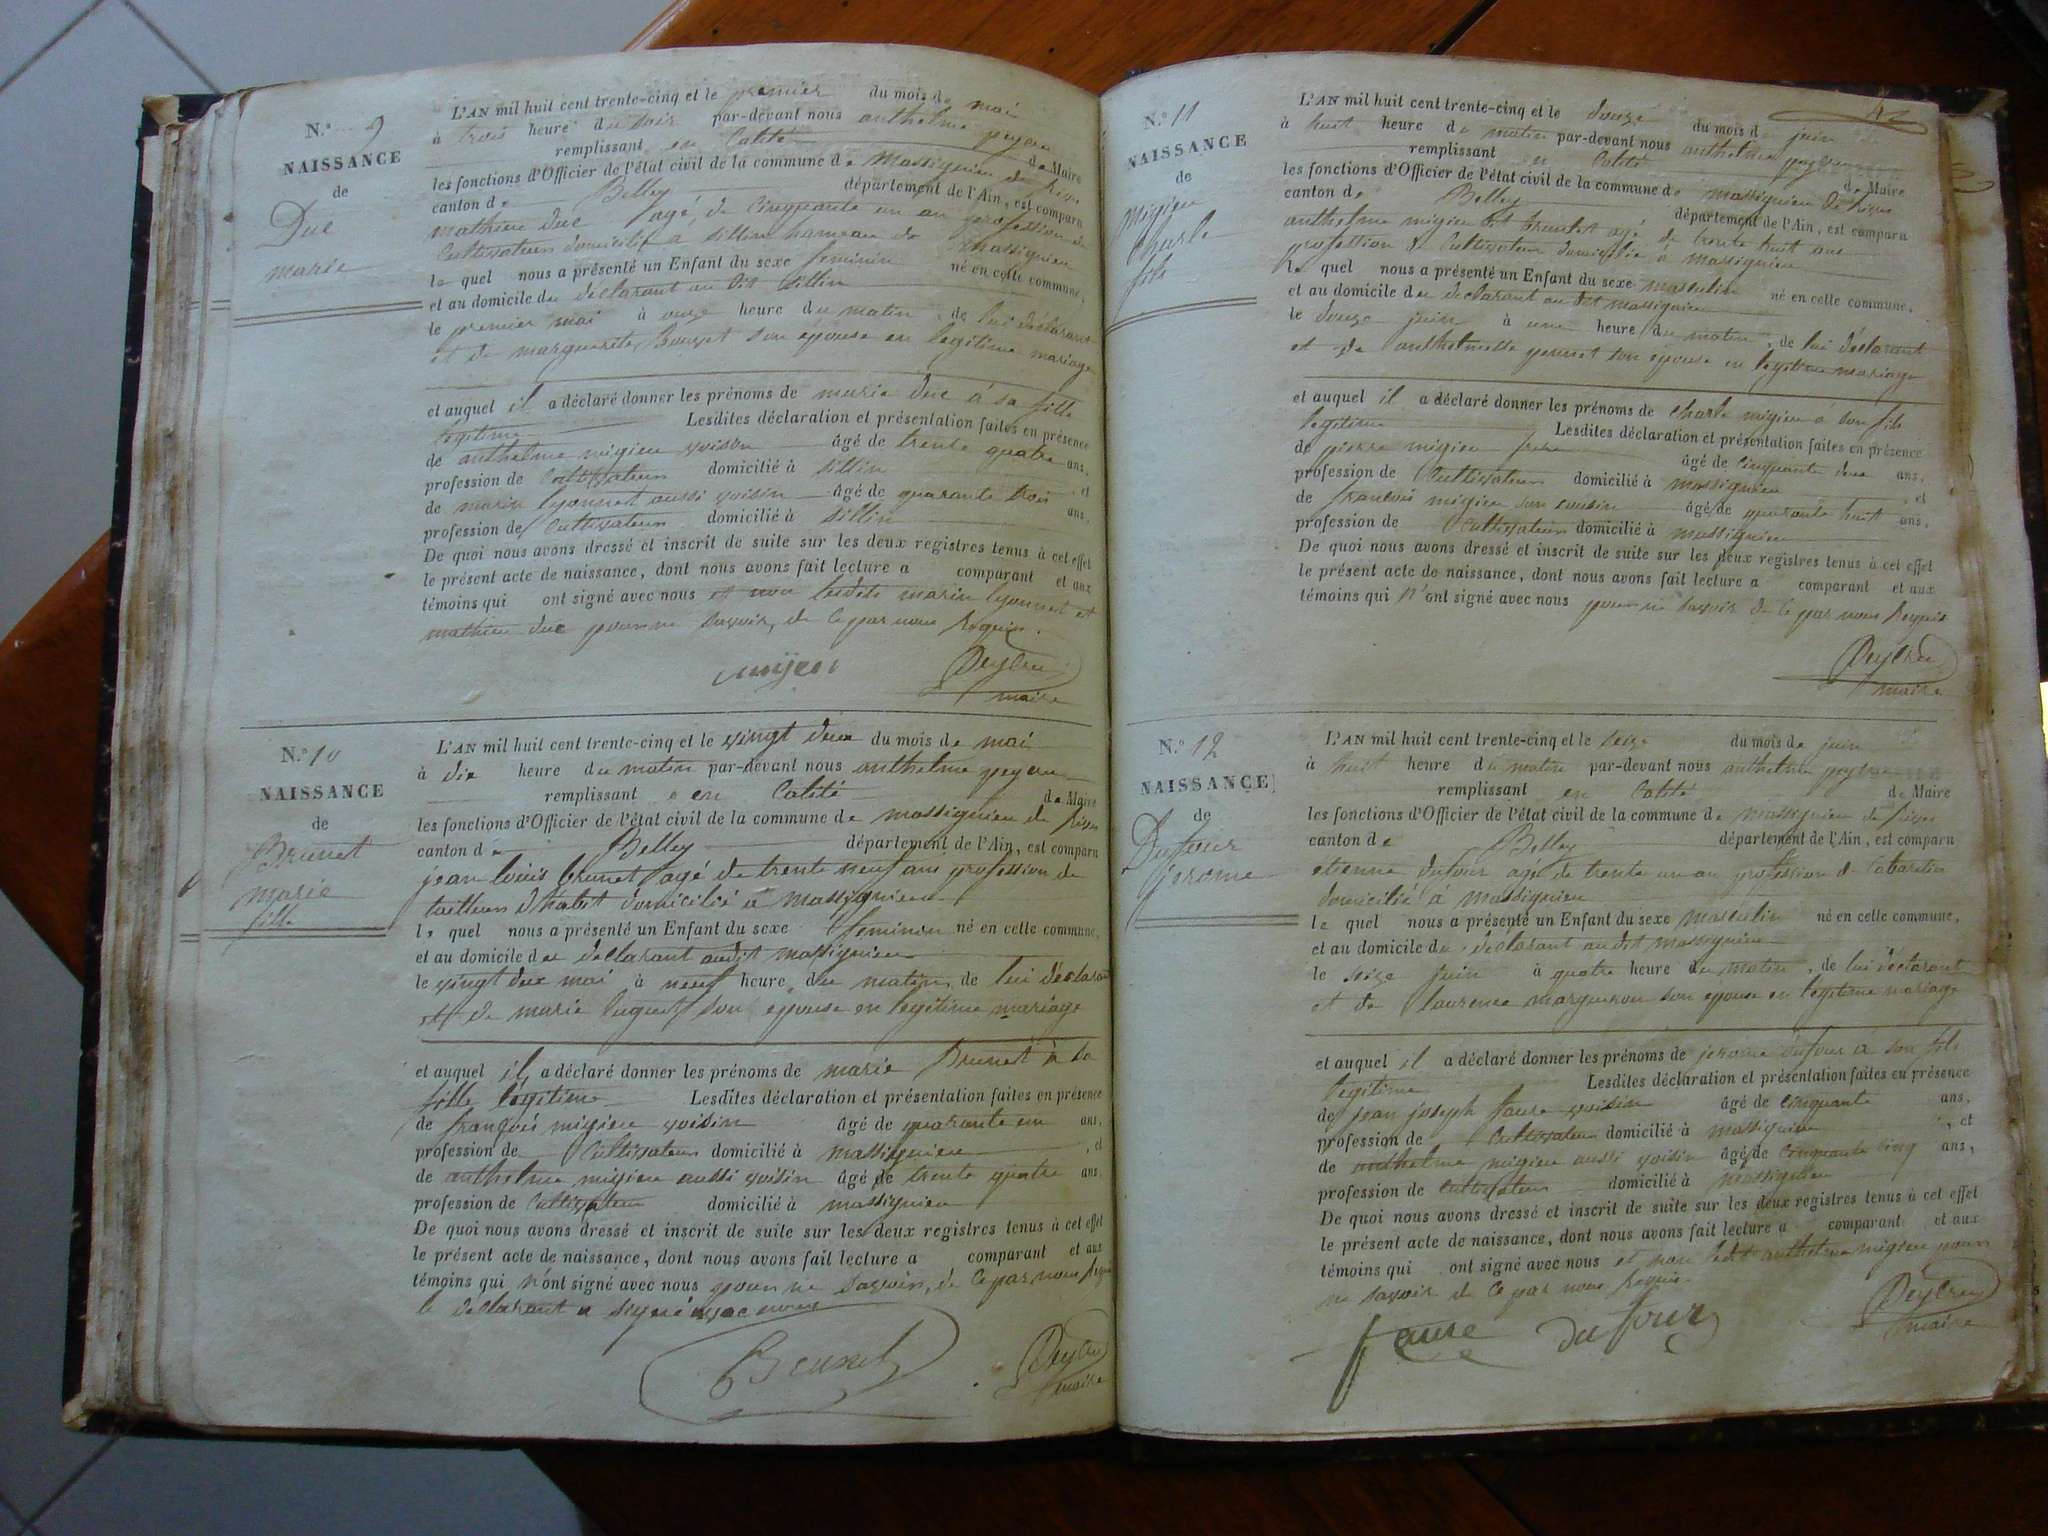 N.° 9
NAISSANCE
de
Duc
marie
L'AN mil huit cent trente-cinq et le premier du mois de mai
à trois heure du soir par-devant nous anthelme peycru
remplissant en Calité de Maire
les fonctions d'Officier de l'état civil de la commune de Massignieu de Rives
canton de Belley département de l'Ain, est comparu
mathieu duc agé de cinquante un an profession de
Cultivateur domicilié à sillin hameau de massignieu
le quel nous a présenté un Enfant du sexe feminin né en celle commune,
et au domicile du déclarant au dit sillin
le premier mai à onze heure du matin, de lui déclarant
et de marguerite son épouse en legitime mariage
et auquel il a déclaré donner les prénoms de marie duc à sa fille
legitime Lesdites déclaration et présentation faites en présence
de anthelme migieu voisin âgé de trente quatre ans,
profession de Cultivateur domicilié à sillin, et
de marin lyonnet aussi voisin âgé de quarante trois ans,
profession de Cultivateur domicilié à sillin
De quoi nous avons dressé et inscrit de suite sur les deux registres tenus à cet effet
le présent acte de naissance, dont nous avons fait lecture a comparant et aux
témoins qui ont signé avec nous et non lesdits marin lyonnet et
mathieu duc pour ne savoir, de ce par nous Requis.
Peycru
maire
N.° 10
NAISSANCE
de
Brunet
marie
fille
L'AN mil huit cent trente-cinq et le vingt deux du mois de mai
à dix heure du matin par-devant nous anthelme peycru
remplissant en Calité de Maire
les fonctions d'Officier de l'état civil de la commune de massignieu de Rives
canton de Belley département de l'Ain, est comparu
jean louis brunet agé de trente neuf ans profession de
tailleur d'habit domicilié à massignieu
le quel nous a présenté un Enfant du sexe feminin né en celle commune,
et au domicile du declarant audit massignieu
le vingt deux mai à neuf heure du matin, de lui déclarant
et de marie huguet son epouse en legitime mariage
et auquel il a déclaré donner les prénoms de marie Brunet à sa
fille legitime Lesdites déclaration et présentation faites en présence
de françois migieu voisin âgé de quarante un ans,
profession de Cultivateur domicilié à massignieu, et
de anthelme migieu aussi voisin âgé de trente quatre ans,
profession de Cultivateur domicilié à massignieu
De quoi nous avons dressé et inscrit de suite sur les deux registres tenus à cet effet
le présent acte de naissance, dont nous avons fait lecture a comparant et aux
témoins qui n'ont signé avec nous pour ne savoir, de ce par nous Requis
le déclarant a signé avec nous
Brunet
Peycru
maire
42
N.° 11
NAISSANCE
de
Migieu
Charle
fils
L'AN mil huit cent trente-cinq et le douze du mois de juin
à huit heure du matin par-devant nous anthelme peycru
remplissant en Calité de Maire
les fonctions d'Officier de l'état civil de la commune de massignieu de Rives
canton de Belley département de l'Ain, est comparu
anthelme migieu dit agé de trente huit ans
profession de Cultivateur domicilié à massignieu
le quel nous a présenté un Enfant du sexe masculin né en celle commune,
et au domicile du declarant au dit massignieu
le douze juin à une heure du matin, de lui déclarant
et de anthelmette son épouse en legitime mariage
et auquel il a déclaré donner les prénoms de charle migieu à son fils
legitime Lesdites déclaration et présentation faites en présence
de pierre migieu âgé de cinquante deux ans,
profession de Cultivateur domicilié à massignieu, et
de francois migieu son cousin âgé de quarante huit ans,
profession de Cultivateur domicilié à massignieu
De quoi nous avons dressé et inscrit de suite sur les deux registres tenus à cet effet
le présent acte de naissance, dont nous avons fait lecture a comparant et aux
témoins qui n'ont signé avec nous pour ne savoir de ce par nous Requis
Peycru
maire
N.° 12
NAISSANCE
de
Dufour
jerome
L'AN mil huit cent trente-cinq et le seize du mois de juin
à huit heure du matin par-devant nous anthelme peycru
remplissant en Calité de Maire
les fonctions d'Officier de l'état civil de la commune de massignieu de Rives
canton de Belley département de l'Ain, est comparu
etienne dufour agé de trente un an profession de Cabaretier
domicilié à massignieu
le quel nous a présenté un Enfant du sexe masculin né en celle commune,
et au domicile du déclarant au dit massignieu
le seize juin à quatre heure du matin, de lui déclarant
et de laurence margueron son epouse en legitime mariage
et auquel il a déclaré donner les prénoms de jerome dufour à son fils
legitime Lesdites déclaration et présentation faites en présence
de jean joseph faure voisin âgé de cinquante ans,
profession de Cultivateur domicilié à massignieu, et
de anthelme migieu aussi voisin âgé de cinquante cinq ans,
profession de Cultivateur domicilié à massignieu
De quoi nous avons dressé et inscrit de suite sur les deux registres tenus à cet effet
le présent acte de naissance, dont nous avons fait lecture a comparant et aux
témoins qui ont signé avec nous et non ledit anthelme migieu pour
ne savoir de ce par nous Requis.
faure dufour
Peycru
maire